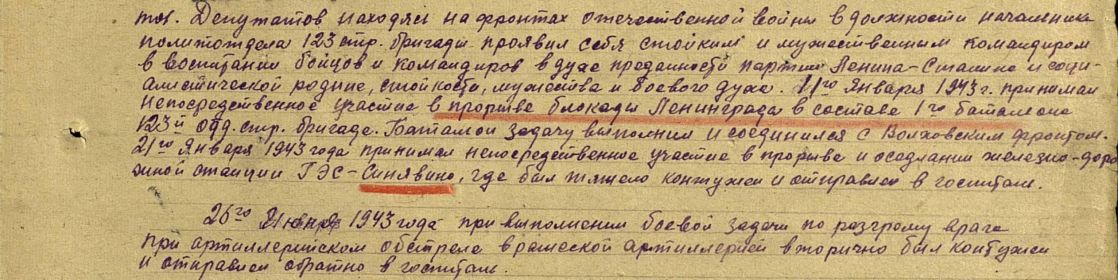 тов. Депутатов находясь на фронтах отечественной войны в должности начальника
политотдела 123 стр. бригады проявил себя стойким и мужественным командиром
в воспитании бойцов и командиров в духе преданности партии Ленина-Сталина и соци-
алистической родине, стойкости, мужества и боевого духа. 11го января 1943 г. принимал
непосредственное участие в прорыве блокады Ленинграда в составе 1го батальона
123й отд. стр. бригады. Батальон задачу выполнил и соединился с Волховским фронтом.
21го января 1943 года принимал непосредственное участие в прорыве и оседлании железно-доро
жной станции ГЭС-Синявино, где был тяжело контужен и отправлен в госпиталь.
26го 1943 года при выполнении боевой задачи по разгрому врага
при артиллерийском обстреле вражеской артиллерией вторично был контужен
и отправлен обратно в госпиталь.